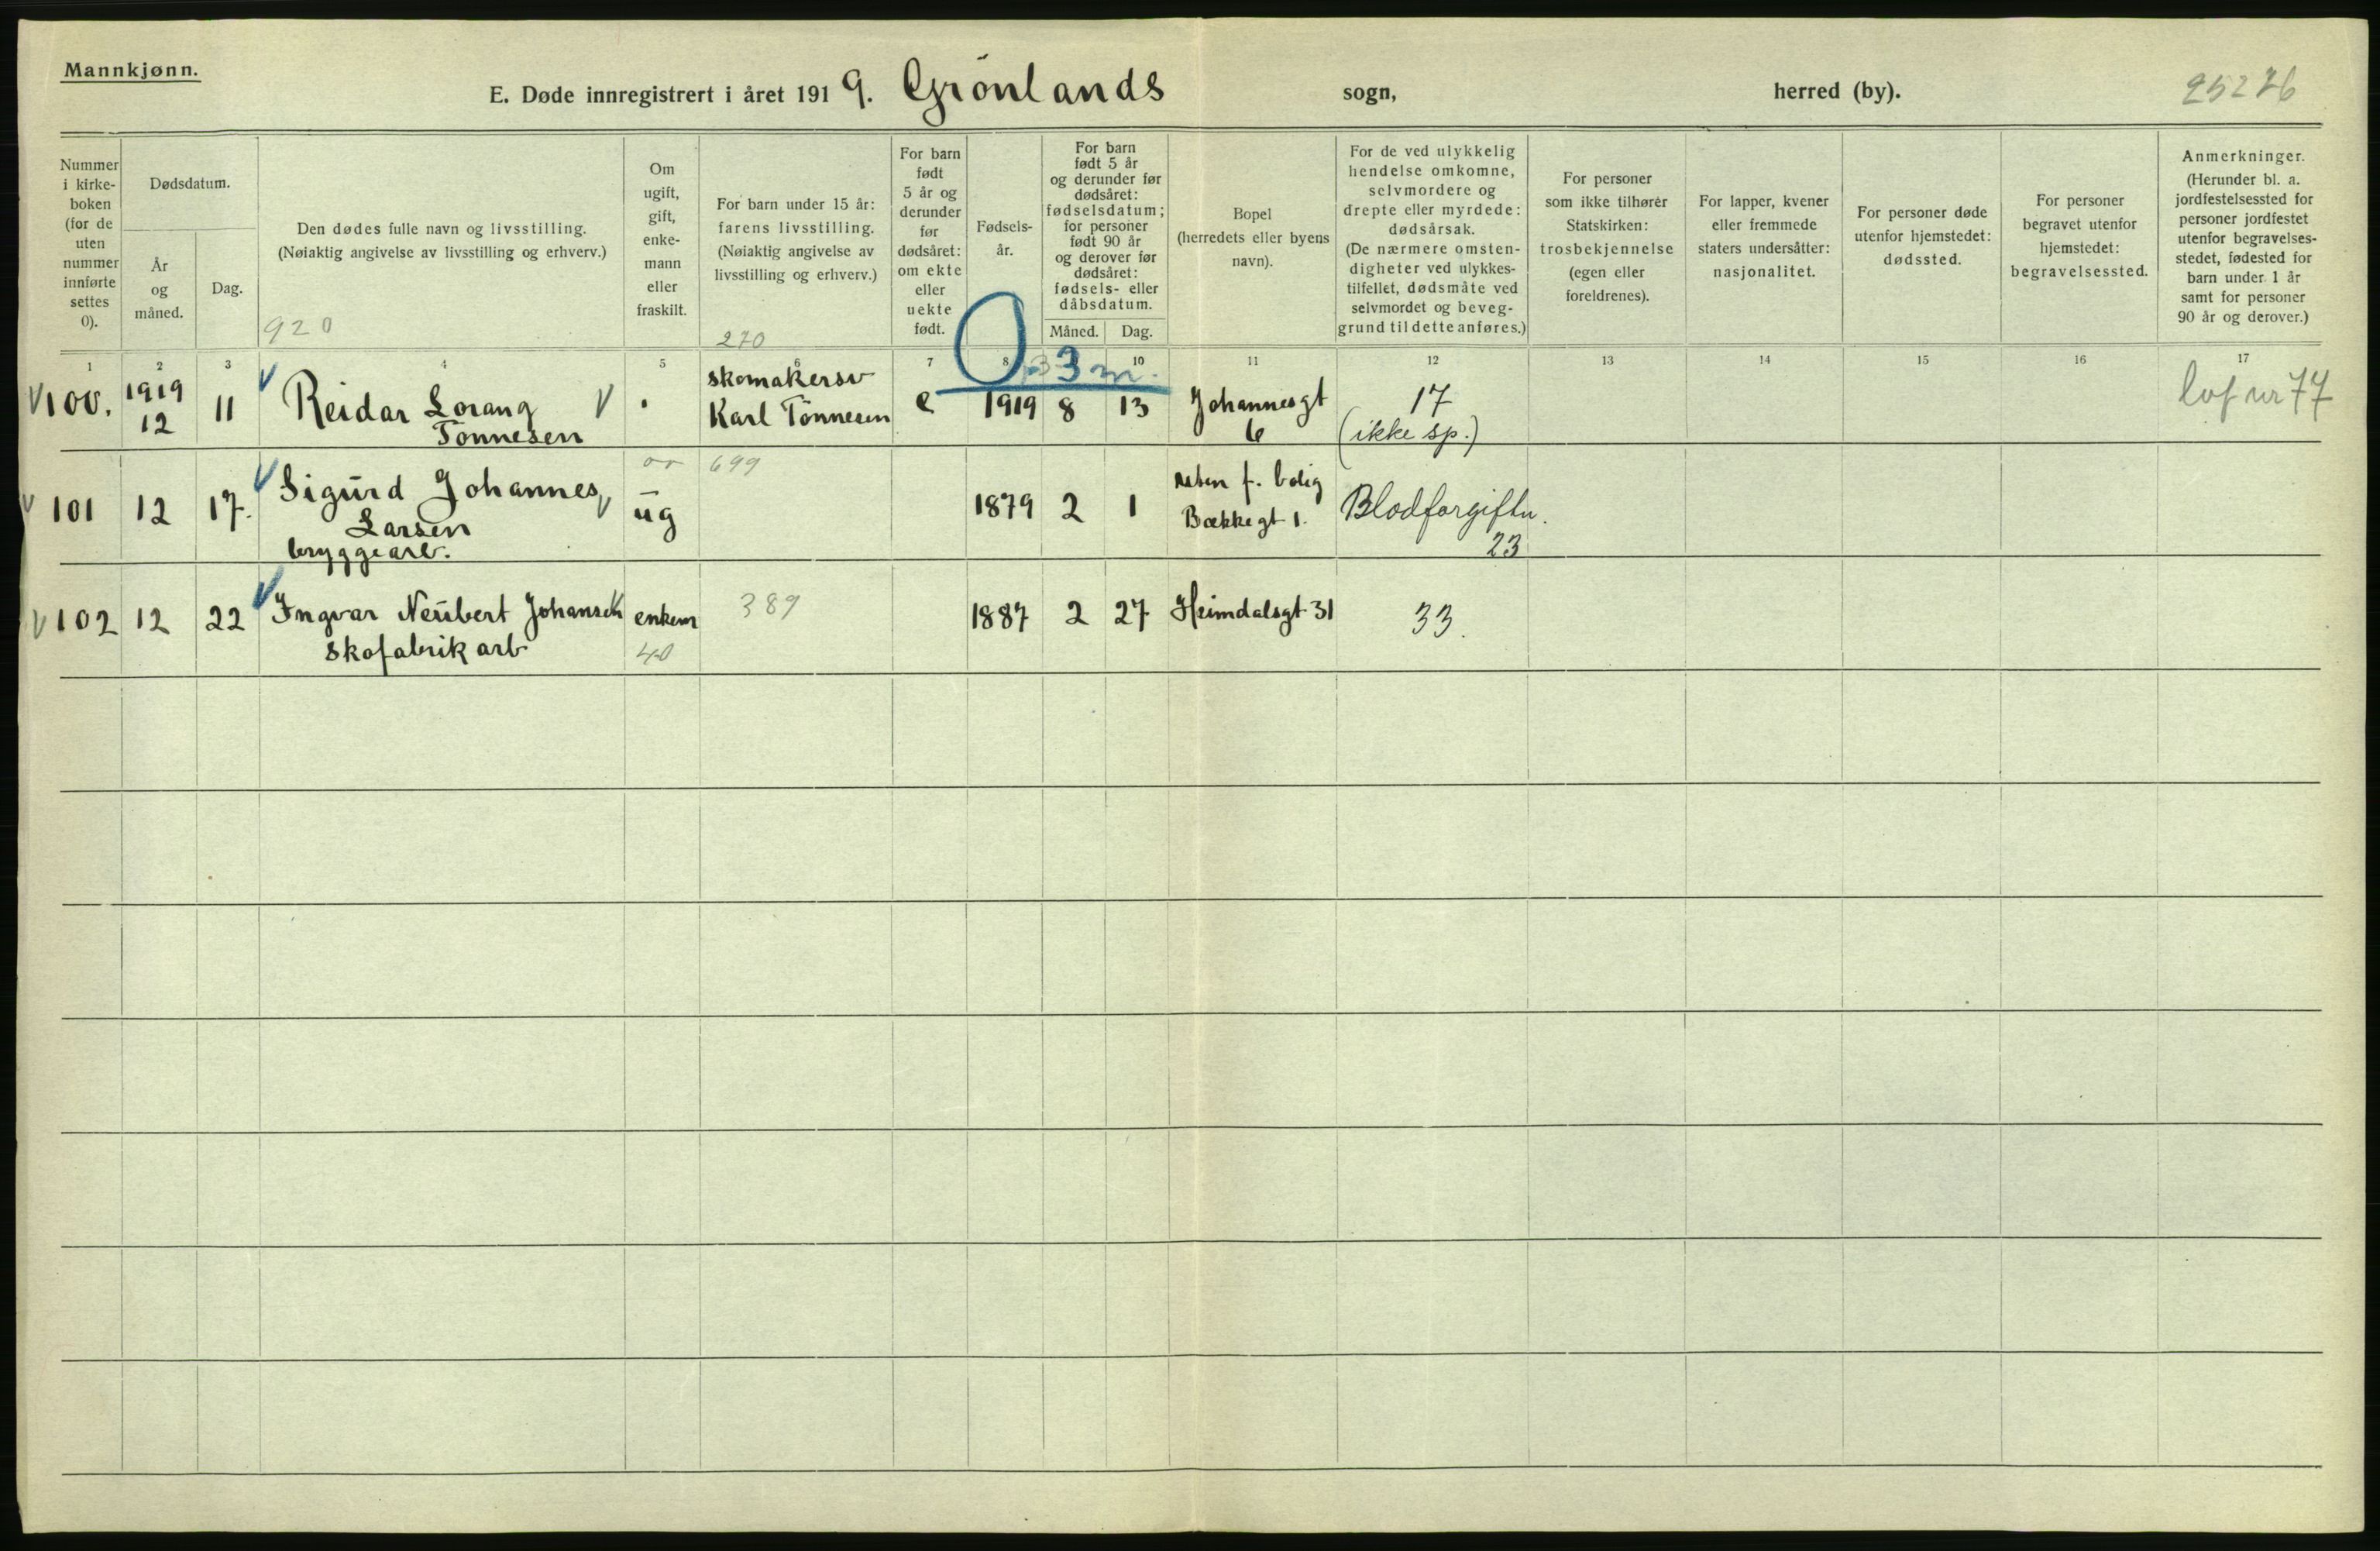 Mannkjønn.
E. Døde innregistrert i året 1919. Grönlands sogn, herred (by). 25276
Nummer
i kirke-
boken
(for de
uten
nummer
innførte
settes
0).
Dødsdatum.
År
og
måned.
Dag.
Den dødes fulle navn og livsstilling.
(Nøiaktig angivelse av livsstilling og erhverv.)
920
Om
ugift,
gift,
enke-
mann
eller
fraskilt.
For barn under 15 år:
farens livsstilling.
(Nøiaktig angivelse av
livsstilling og erhverv.)
270
For barn
født
5 år og
derunder
før
dødsåret:
om ekte
eller
uekte
født.
Fødsels-
år.
For barn
født 5 år
og derunder før
dødsåret:
fødselsdatum;
for personer
født 90 år
og derover før
dødsåret:
fødsels- eller
dåbsdatum.
Måned. Dag.
Bopel
(herredets eller byens
navn).
For de ved ulykkelig
hendelse omkomne,
selvmordere og
drepte eller myrdede:
dødsårsak.
(De nærmere omsten-
digheter ved ulykkes-
tilfellet, dødsmåte ved
selvmordet og beveg-
grund til dette anføres.)
For personer
som ikke tilhører
Statskirken:
trosbekjennelse
(egen eller
foreldrenes).
For lapper, kvener
eller fremmede
staters undersåtter:
nasjonalitet.
For personer døde
utenfor hjemstedet:
dødssted.
For personer
begravet utenfor
hjemstedet:
begravelsessted.
Anmerkninger.
(Herunder bl. a.
jordfestelsessted for
personer jordfestet
utenfor begravelses-
stedet, fødested for
barn under 1 år
samt for personer
90 år og derover.)
1 2 3 4 5 6 7 8 10 11 12 13 14 15 16 17
0 3 m.
100. 1919 12 11 Reidar Lorang
Tönnesen
skomakersv
Karl Tönnesen
e 1919 8 13 Johannesgt
6
17
(ikke sp.)
nr 77
101 12 17. Sigurd Johannes
Larsen
bryggearb.
ug
699
1879 2 1
f. bolig
Bækkegt 1.
Blodforgiftn.
23
102 12 22 Ingvar Neubert Johansen
skofabrik arb
enkem
40
389
1887 2 27 Heimdalsgt 31 33.